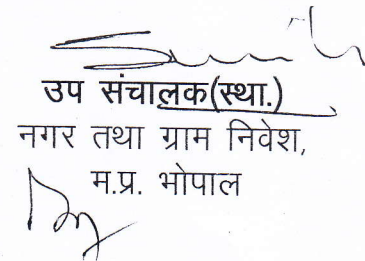 उप संचालक(स्था.)
नगर तथा ग्राम निवेश,
म.प्र. भोपाल